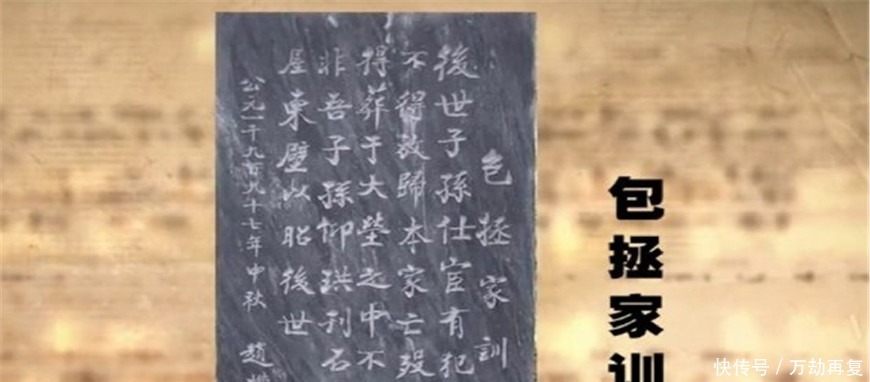 包拯家训
包拯家訓
後世子孫仕宦有犯
不得放歸本家亡殁
得葬于大塋之中不
非吾子孫仰珙刊石
屋東壁以昭後世
公元一千九百九十七年中秋 趙
快传号 / 万劫再复